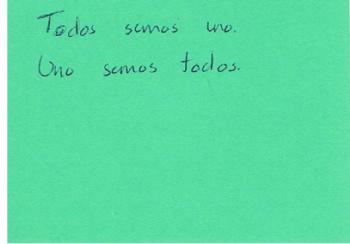 Todos somos uno.
Uno somos todos.